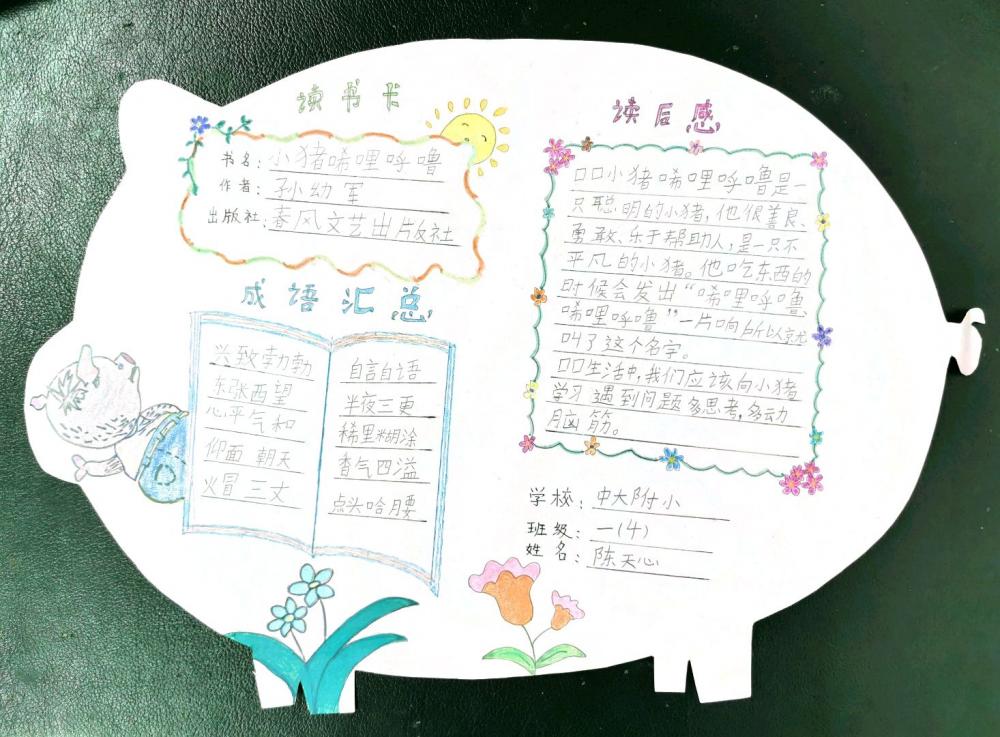 读书卡
书名：小猪唏哩呼噜
作者：孙幼军
出版社：春风文艺出版社
成语汇总
兴致勃勃
东张西望
心平气和
仰面朝天
火冒三丈
自言自语
半夜三更
稀里糊涂
香气四溢
点头哈腰
读后感
口口小猪唏哩呼噜是一
只聪明的小猪，他很善良、
勇敢、乐于帮助人，是一只不
平凡的小猪。他吃东西的
时候会发出“唏哩呼噜、
唏哩呼噜”一片响所以就
叫了这个名字。
口口生活中，我们应该向小猪
学习遇到问题多思考，多动
脑筋。
学校：中大附小
班级：一(4)
姓名：陈天心